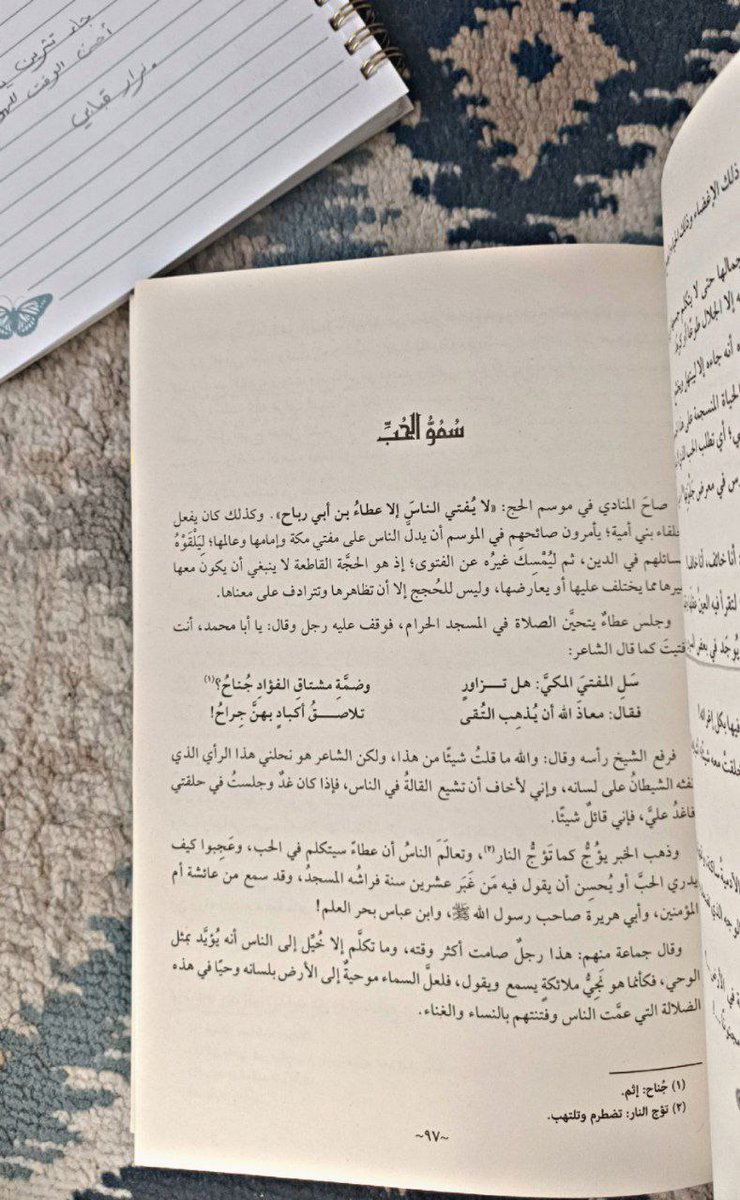 جاء تشرين
أحسن الوقت
نزار قباني
سُمُوُّ الحُبِّ
صاحَ المنادي في موسم الحج: «لا يُفتي الناسَ إلا عطاءُ بن أبي رباح». وكذلك كان يفعل
خلفاء بني أمية؛ يأمرون صائحهم في الموسم أن يدلَّ الناس على مفتي مكة وإمامها وعالمها؛ لِيَلْقَوْهُ
بمسائلهم في الدين، ثم ليُمْسِكَ غيرُه عن الفتوى؛ إذ هو الحجَّة القاطعة لا ينبغي أن يكون معها
غيرها مما يختلف عليها أو يعارضها، وليس للحُجج إلا أن تظاهرها وتترادف على معناها.
وجلس عطاءٌ يتحيَّن الصلاة في المسجد الحرام، فوقف عليه رجل وقال: يا أبا محمد، أنت
أفتيتَ كما قال الشاعر:
سَلِ المفتيَ المكيَّ: هل تـــزاورٍ وضمَّة مشتاقِ الفؤادِ جُناحُ؟(١)
فقال: معاذَ الله أن يُذهِب التُّقى تلاصــقُ أكبادٍ بهنَّ جِراحُ!
فرفع الشيخ رأسه وقال: والله ما قلتُ شيئًا من هذا، ولكن الشاعر هو نحلني هذا الرأي الذي
نفثه الشيطانُ على لسانه، وإني لأخاف أن تشيع القالةُ في الناس، فإذا كان غدٌ وجلستُ في حلقتي
فاغدُ عليَّ، فإني قائلٌ شيئًا.
وذهب الخبر يؤُجُّ كما تؤجُّ النار(٢)، وتعالَمَ الناسُ أن عطاءً سيتكلم في الحب، وعَجِبوا كيف
يدري الحبَّ أو يُحسِن أن يقول فيه مَن غَبَر عشرين سنة فراشُه المسجدُ، وقد سمع من عائشة أم
المؤمنين، وأبي هريرة صاحب رسول الله ﷺ، وابن عباس بحر العلم!
وقال جماعة منهم: هذا رجلٌ صامت أكثر وقته، وما تكلَّم إلا خُيِّل إلى الناس أنه يُؤيَّد بمثل
الوحي، فكأنما هو نَجِيُّ ملائكةٍ يسمع ويقول، فلعلَّ السماء موحيةٌ إلى الأرض بلسانه وحيًا في هذه
الضلالة التي عمَّت الناس وفتنتهم بالنساء والغناء.
(١) جُناح: إثم.
(٢) تؤج النار: تضطرم وتلتهب.
~٩٧~
ذلك الإغضاء وذلك
جمالها حتى لا يتكلم
إلا الجلال
أنه جاءه إلا
الحياة المنسجمة على
؛ أي تطلب الحب
س في معرض
: أنا خائف، أنا
لتقرأ فيه العين
يُوجَد في بعض
فيها بكل